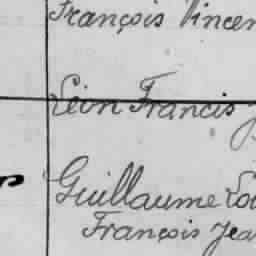 François Vincen
Léon Francis J
Guillaume Lou
François Jean